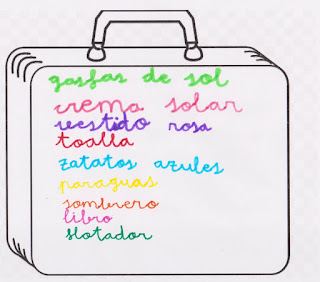 gasfas de sol
crema solar
vestido rosa
toalla
zatatos azules
paraguas
sombrero
libro
slotador